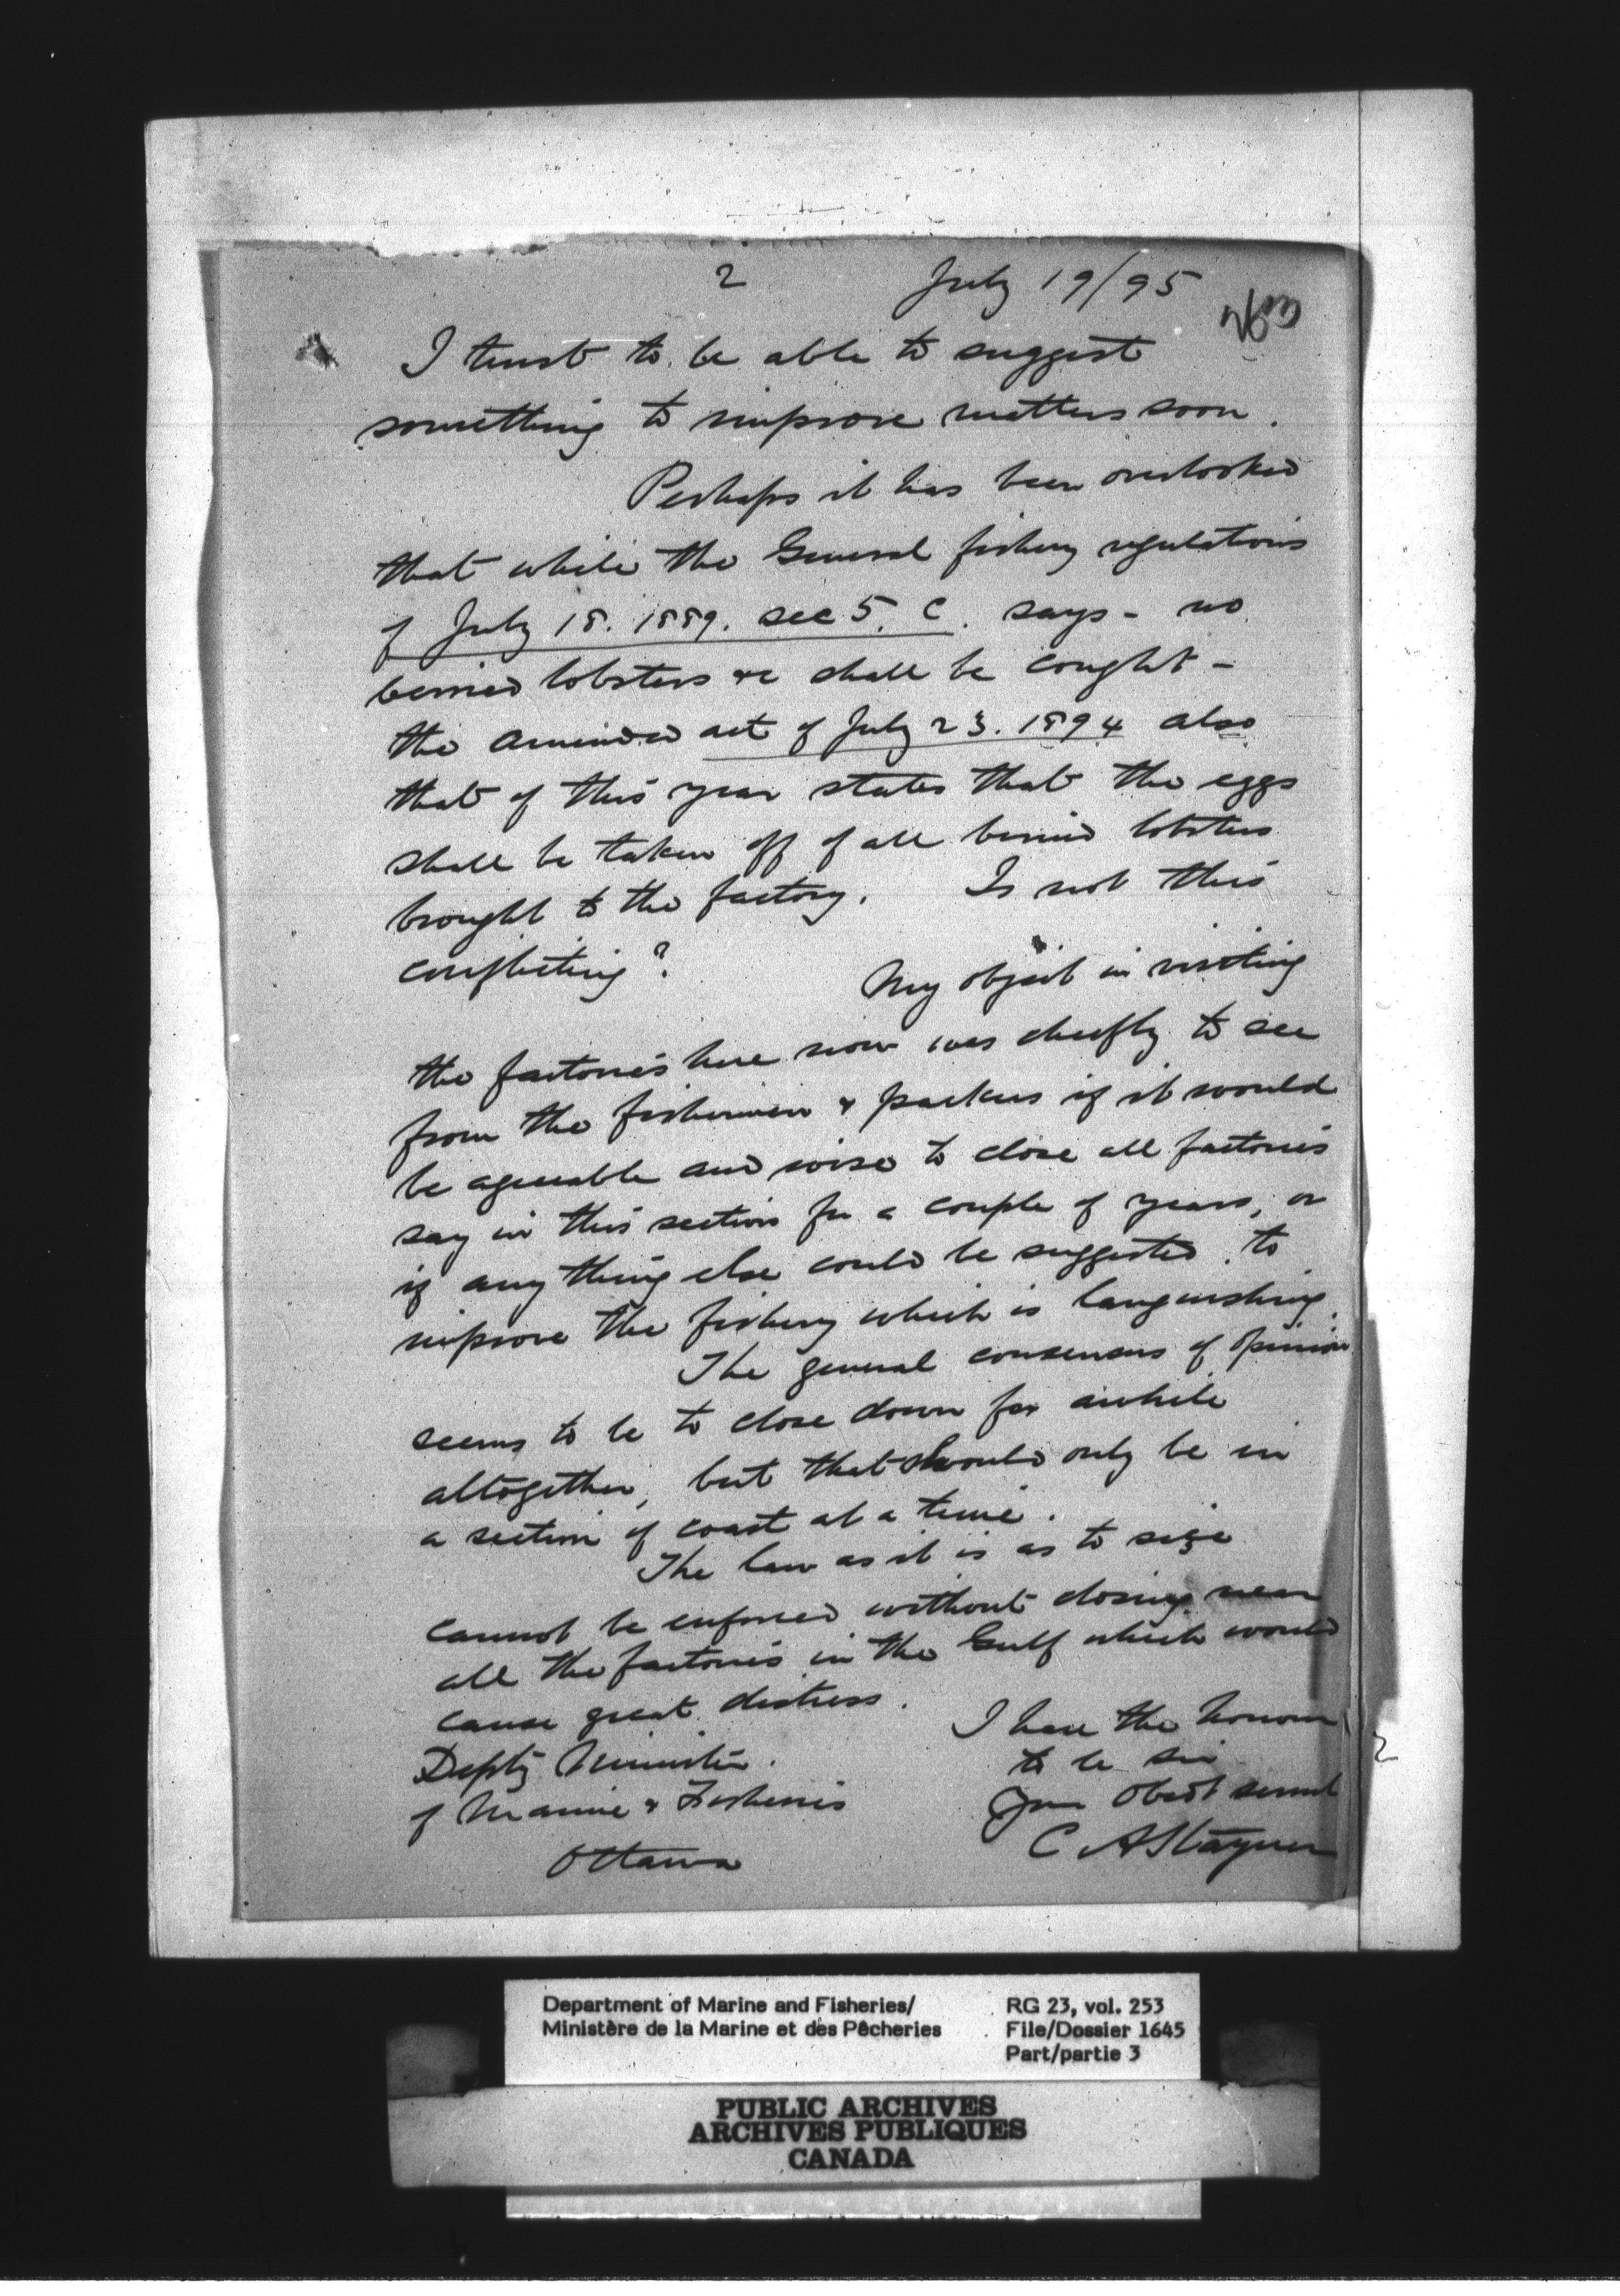 2 July 19/95
I trust to be able to suggest
something to improve matters soon.
Perhaps it has been overlooked
that while the General fishery regulations
of July 18. 1889. sec 5. C. says - no
berried lobsters &c shall be caught -
the amended act of July 23. 1894 also
that of this year states that the eggs
shall be taken off of all berried lobsters
brought to the factory. Is not this
conflicting?
My object in visiting
the factories here now was cheefly to see
from the fishermen & packers if it would
be agreeable and wise to close all factories
say in this section for a couple of years, or
if any thing else could be suggested to
improve the fishery which is languishing.
The general consensus of opinion
seems to be to close down for awhile
altogether, but that should only be in
a section of coast at a time.
The law as it is as to size
cannot be enforced without closing near
all the factories in the Gulf which would
cause great distress.
I have the honour
to be sir
Your Obedt servnt
C A Stayner
Depty Minister.
of Marine & Fisheries
Ottawa
2
Department of Marine and Fisheries/
Ministère de la Marine et des Pêcheries
RG 23, vol. 253
File/Dossier 1645
Part/partie 3
PUBLIC ARCHIVES
ARCHIVES PUBLIQUES
CANADA